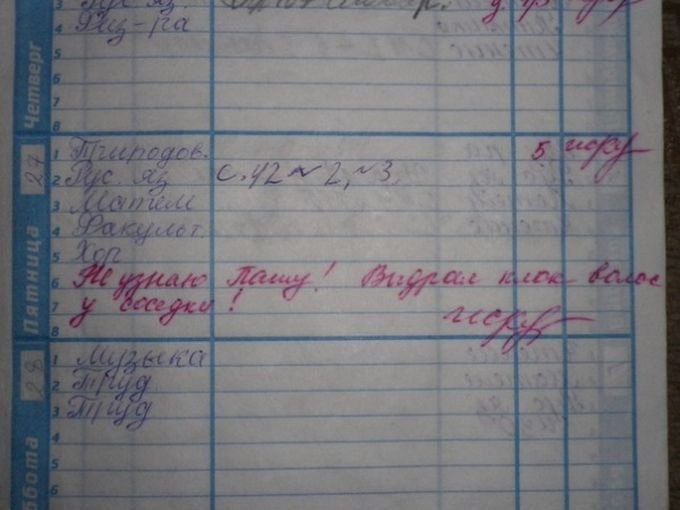 3 Рус. яз.
4 Физ-ра
5
6
7
8
Четверг
27
Пятница
1 Природов. 5
2 Рус. яз с. 42 № 2, № 3.
3 Матем
4 Факульт.
5 Хор
6 Не узнаю Пашу! Выдрал клок волос
7 у соседки!
8
28
ббота
1 Музыка
2 Труд
3 Труд
4
5
6